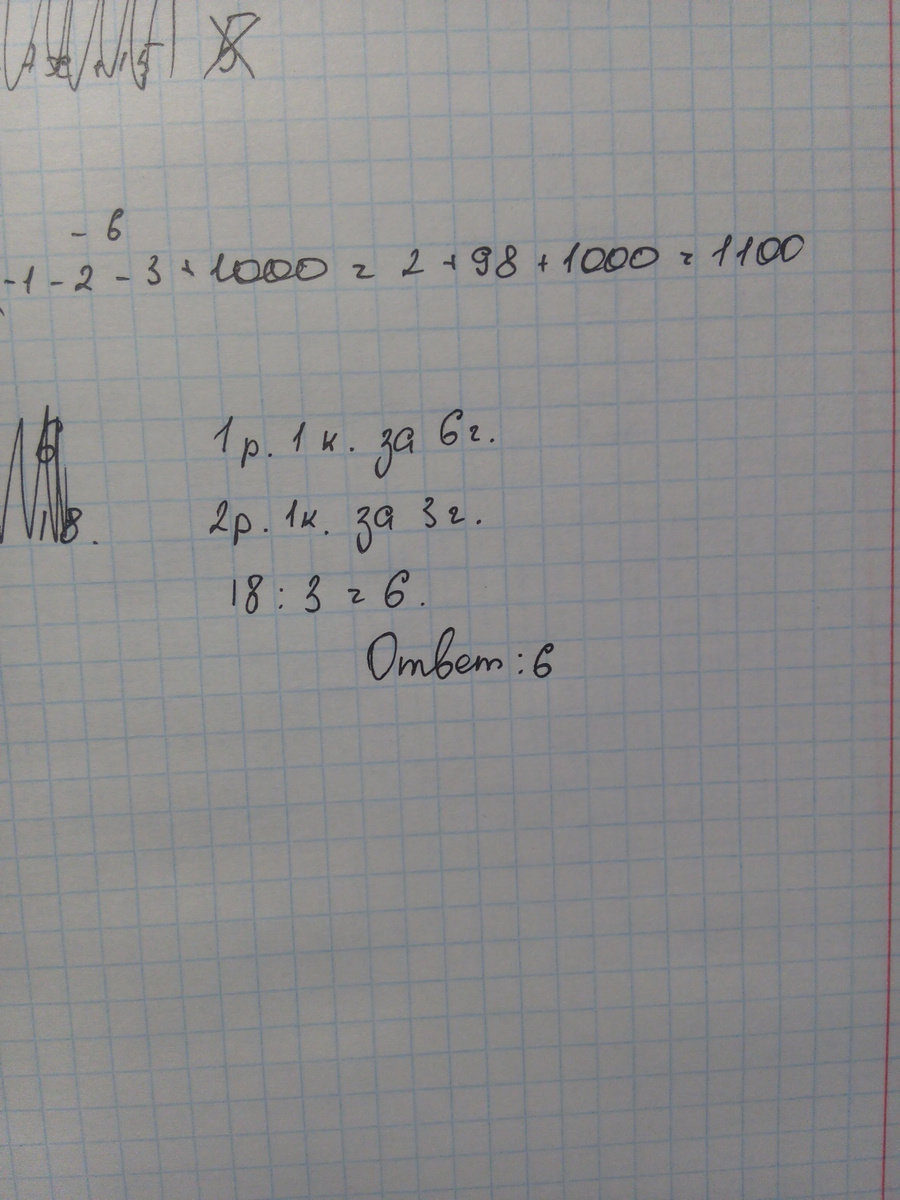 - 6
-1 - 2 - 3 + 1000 = 2 + 98 + 1000 = 1100
1р. 1 к. за 6г.
2р. 1к. за 3г.
18 : 3 = 6.
Ответ: 6